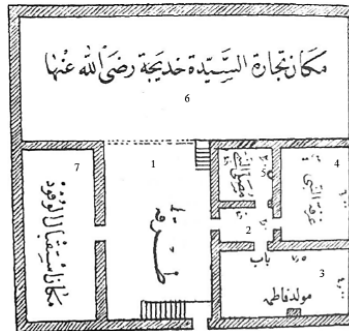 مكان تجارة السيدة خديجة رضي الله عنها
6
7
مكان استقبال الوفود
1
مصلى النبي
5
4
غرفة النبي
2
باب
3
مولد فاطمة